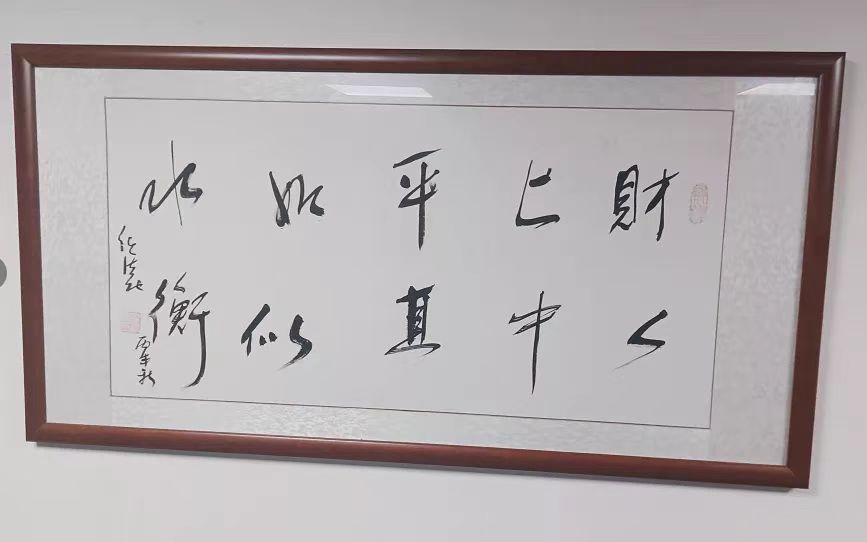 財上平如水
人中直似衡